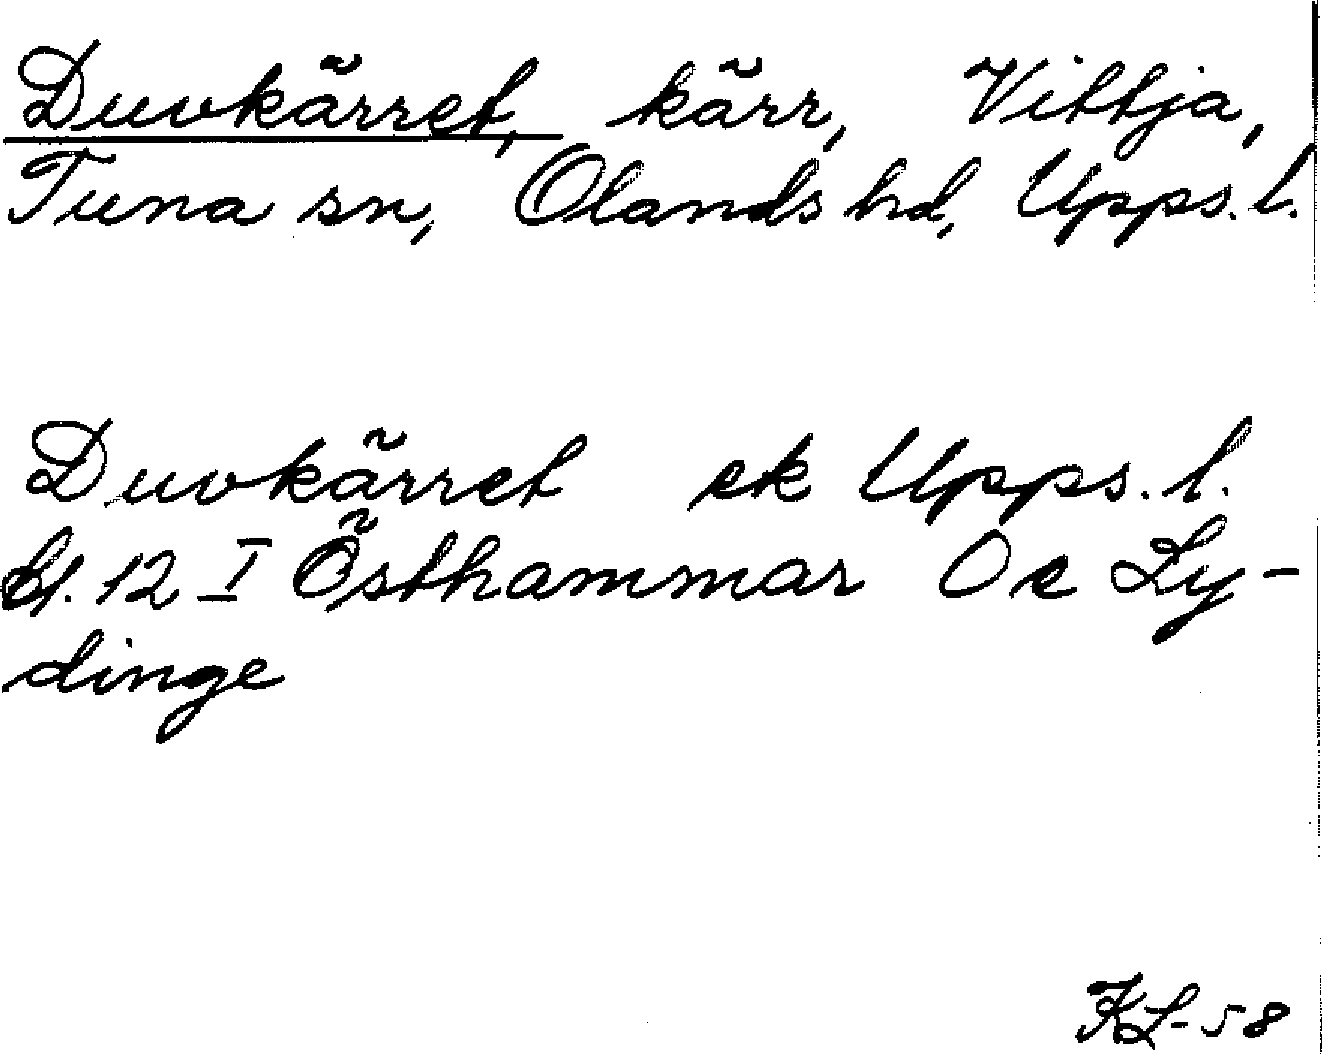 Duvkärret, kärr, Vittja,
Tuna sn, Olands hd, Upps. l.
Duvkärret ek Upps. l.
bl. 12 I Östhammar Oe Ly-
dinge
KL-58